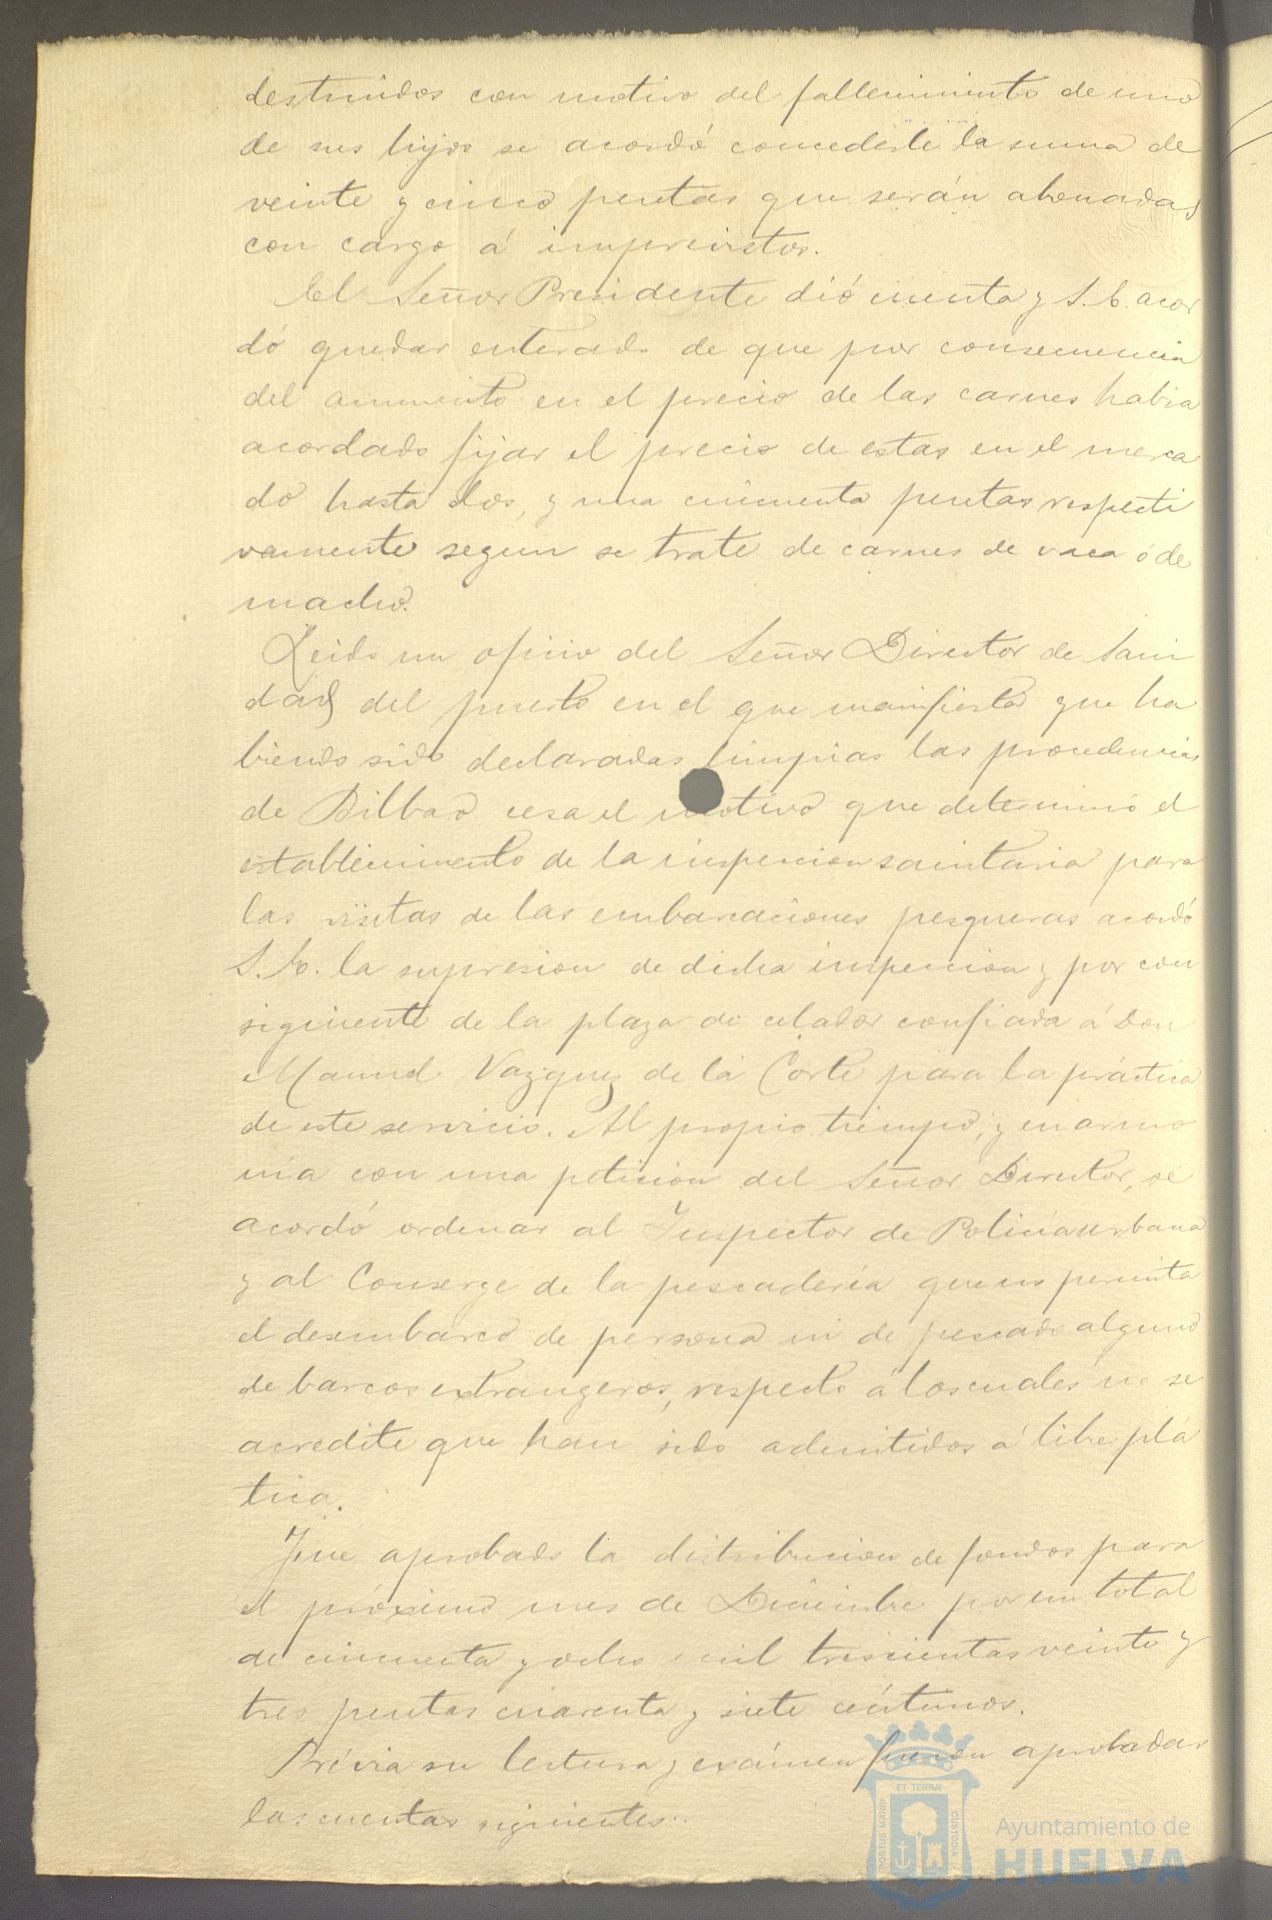 destruidos con motivo del fallecimiento de uno
de sus hijos se acordó concederle la suma de
veinte y cinco pesetas que serán abonadas
con cargo á imprevistos.
El Señor Presidente dió cuenta y S. E. acor
dó quedar enterado de que por consecuencia
del aumento en el precio de las carnes habia
acordado fijar el precio de estas en el merca
do hasta dos, y una cincuenta pesetas respecti
vamente segun se trate de carnes de vaca ó de
macho.
Leido un oficio del Señor Director de Sani
dad del puerto en el que manifiesta que ha
biendo sido declaradas limpias las procedencias
de Bilbao cesa el motivo que determinó el
establecimiento de la inspeccion sanitaria para
las visitas de las embarcaciones pesqueras acordó
S. E. la supresion de dicha inspeccion y por con
siguiente de la plaza de celador confiada á Don
Manuel Vazquez de la Corte para la práctica
de este servicio. Al propio tiempo, y en armo
nia con una peticion del Señor Director, se
acordó ordenar al Inspector de Policía urbana
y al Conserge de la pescadería que no permita
el desembarco de persona ni de pescado alguno
de barcos extrangeros, respecto á los cuales no se
acredite que han sido admitidos á libre plá
tica.
Fué aprobada la distribucion de fondos para
el próximo mes de Diciembre por un total
de cincuenta y ocho mil trescientas veinte y
tres pesetas cuarenta y siete céntimos.
Prévia su lectura y exámen fueron aprobadas
las cuentas siguientes:
ET TERRÆ
PORTUS MARIS
CUSTODIA
Ayuntamiento de
HUELVA